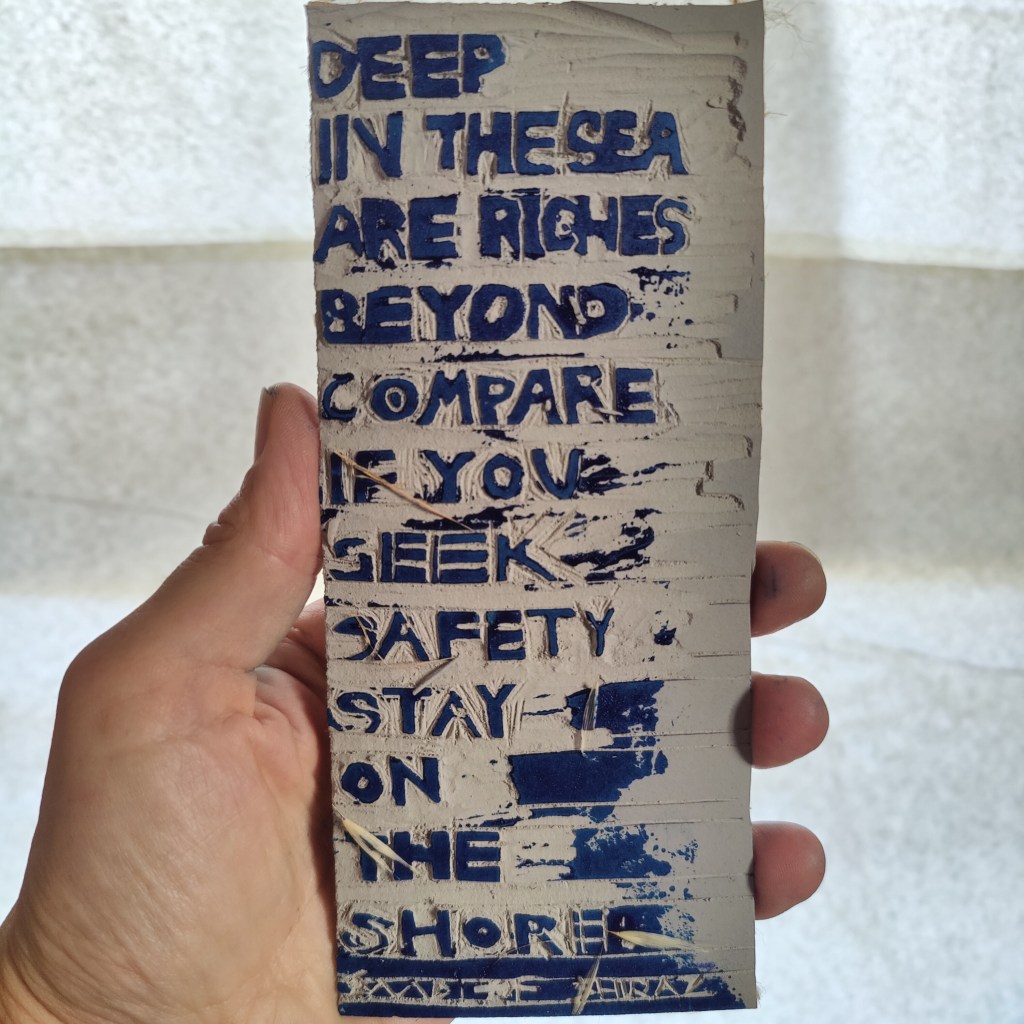 DEEP
IN THE SEA
ARE RICHES
BEYOND
COMPARE
IF YOU
SEEK
SAFETY
STAY
ON
THE
SHORE
SAADI OF SHIRAZ